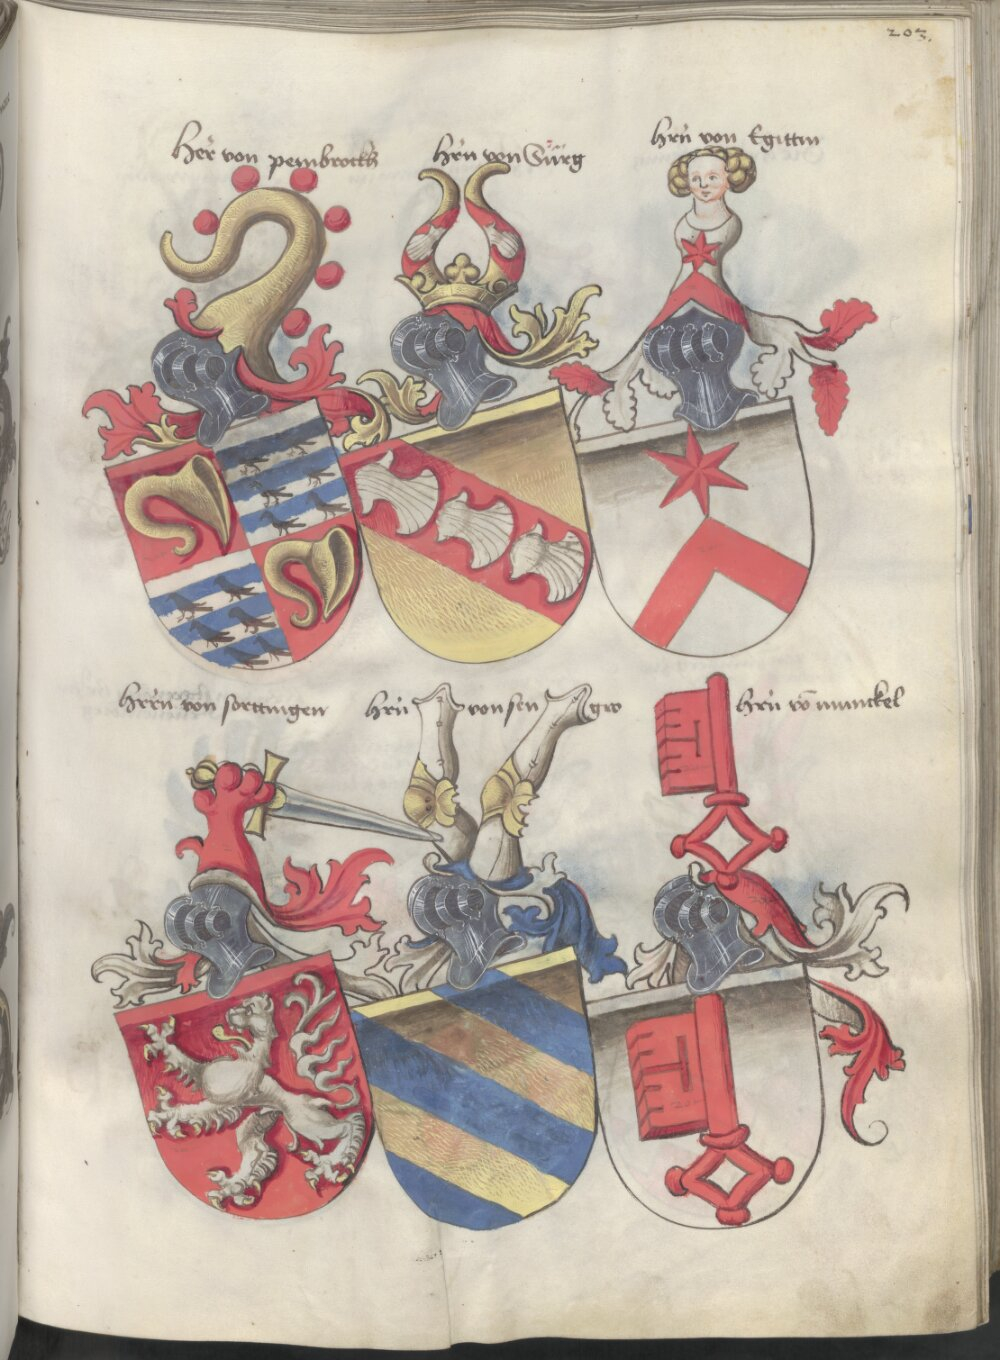 203.
Her von pembrockh
Hrn von Sürg
Hrn von Egittin
Hrrn von sorttingen
Hrn von sengro
Hrn võ munckel